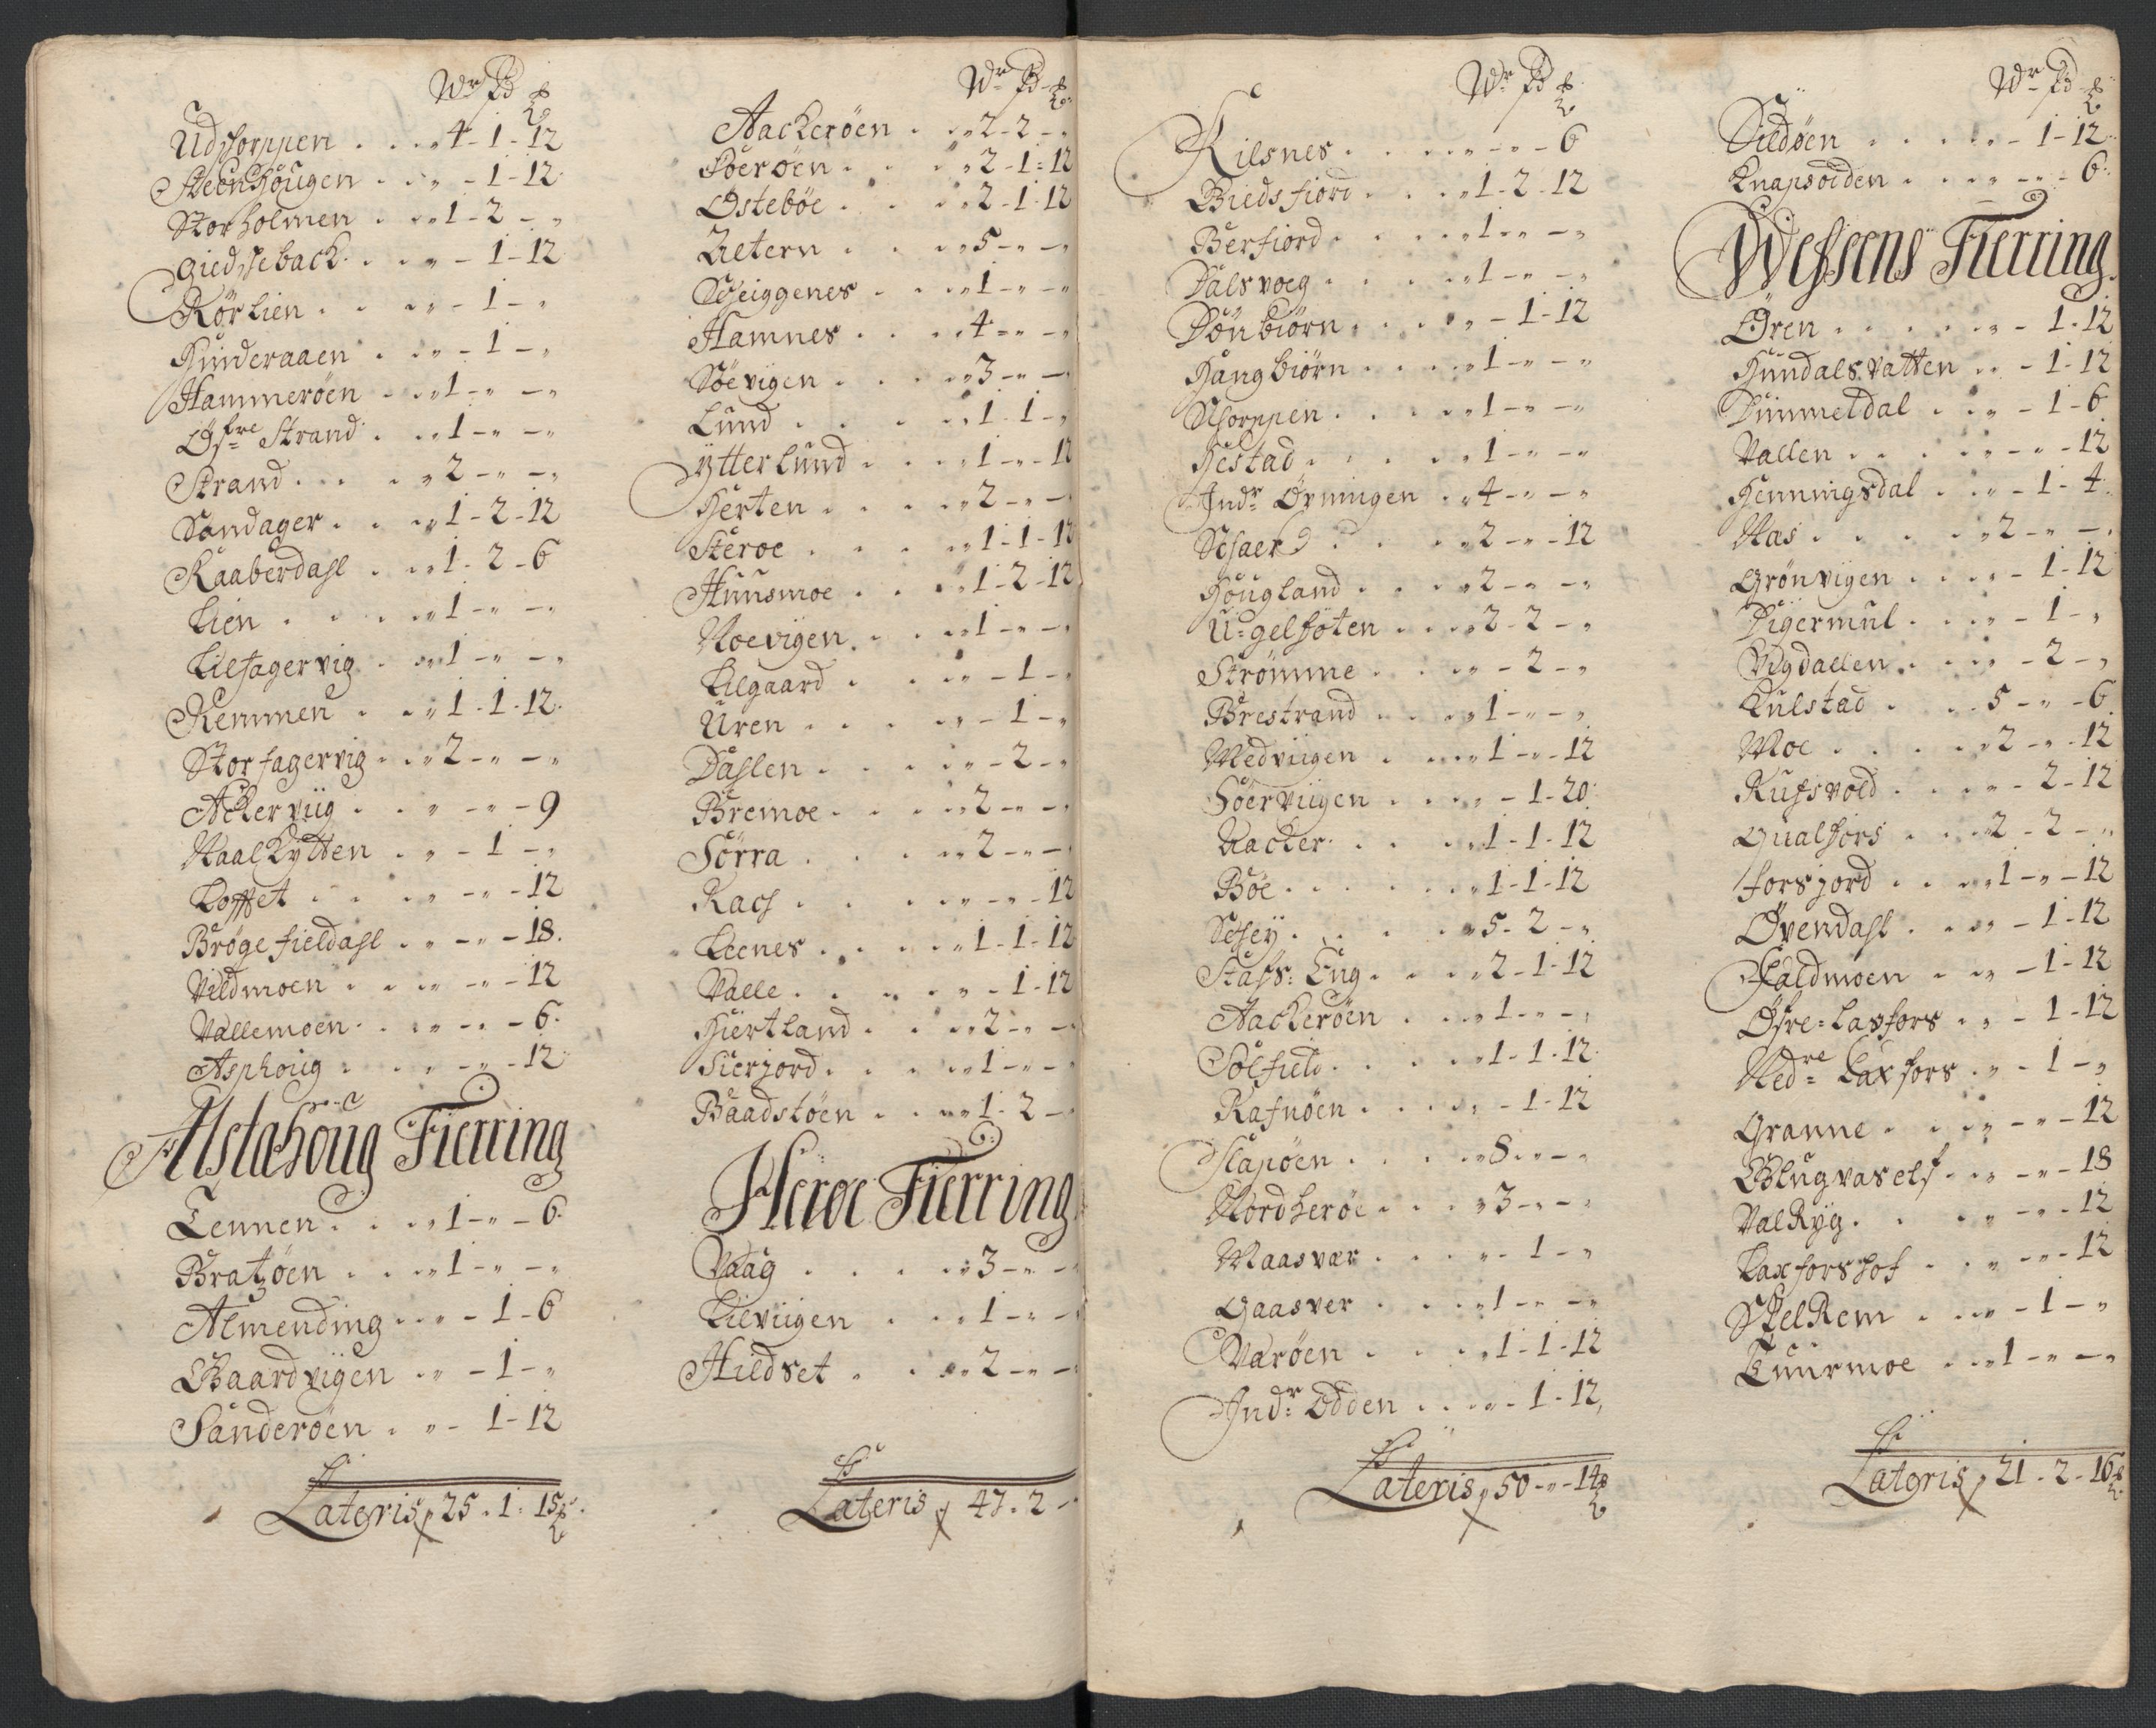 Wr Pd
Udschorppen . . . „ 4 - 1 - 12
Steenhougen . . „ - 1 - 12
Storholmen . . „ 1 - 2 - „
Giedsseback . . „ - 1 - 12
Rörlien . . . „ - 1 - „
Hinderaaen . . „ - 1 - „
Hammeröen . . „ 1 - „ - „
Øfre Strand . . „ 1 - „ - „
Strand . . . „ 2 - „ - „
Sandager . . „ 1 - 2 - 12
Kaaberdahl . . „ 1 - 2 - 6
Lien . . . „ 1 - „ - „
Lilfagervig . „ 1 - „ - „
Remmen . . „ 1 - 1 - 12
Storfagervig . . „ 2 - „ - „
Ackerviig . . „ - „ - 9
Naalkytten . „ - 1 - „
Loffset . . . „ - „ - 12
Brøgefieldahl . „ - „ - 18
Vildmoen . . . „ - „ - 12
Vallemoen . . „ - „ - 6
Asphoug . . . „ - „ - 12
Alstahoug Fierring
Tennen . . . „ 1 - „ - 6
Bratzöen . . . „ 1 - „ - „
Almending . . „ - 1 - 6
Baardvigen . „ - 1 - „
Sanderöen . „ - 1 - 12
Lateris 25 . 1 : 15
Wr Pd
Aackeröen . „ 2 - 2 - „
Söeröen . . „ 2 - 1 - 12
Østebøe . . „ 2 - 1 - 12
Zetern . . . „ 5 - „ - „
Scheiggenes . . „ 1 - „ - „
Hamnes . . . 4 - „ - „
Söevigen . . . „ 3 - „ -
Lund . . . „ 1 - 1 - „
Ytterlund . . . „ 1 - „ - 12
Herten . . . „ 2 - „ -
Steroe . . . „ 1 - 1 - 12
Huusmoe . . . 1 - 2 - 12
Noevigen . . „ 1 - „ -
Lilgaard . . „ - 1 - „
Uren . . . „ - 1 - „
Dahlen . . . „ - 2 - „
Bremoe . . . „ 2 - „ -
Sörra . . . „ 2 - „ -
Rach . . . „ - „ - 12
Leenes . . . „ 1 - 1 - 12
Valle . . . „ - 1 - 12
Hiertland . . „ 2 - „ -
Sierjord . . . „ 1 - „ -
Baadstöen . . „ 1 - 2 -
Heroe Fierring
Vaag . . . „ 3 - „ -
Lilviigen . . „ 1 - „ -
Hildset . . . „ 2 - „ -
Lateris 47 . 2 -
Wr Pd
Kilsnes . . . „ - „ - 6
Biedsfiord . . . „ 1 - 2 - 12
Berfiord . . . „ 1 - „ - „
Dalsvoeg . . . „ 1 - „ - „
Dönbiörn . . . „ - 1 - 12
Hangbiörn . . . „ 1 - „ - „
Schorppen . . . „ 1 - „ - „
Hestad . . . „ 1 - „ - „
Indr Övningen . „ 4 - „ - „
Schaer . . . „ 2 - „ - 12
Hougland . . . „ 2 - „ - „
U=gelsöten . . . „ 2 - 2 - „
Strömme . . . „ - 2 - „
Brestrand . . „ 1 - „ - „
Medviigen . . . „ 1 - „ - 12
Söerviigen . . . „ - 1 - 20
Aacker . . . „ 1 - 1 - 12
Böe . . . „ 1 - 1 - 12
Schey . . . „ 5 - 2 - „
Stafs: Eng . . . „ 2 - 1 - 12
Aackeröen . . . „ 1 - „ - „
Solfield . . . „ 1 - 1 - 12
Rafnöen . . . „ - 1 - 12
Slapöen . . . „ 8 - „ - „
Nordheröe . . . „ 3 - „ - „
Maasvær . . . „ - 1 - „
Gaasver . . . „ 1 - „ - „
Varöen . . . „ 1 - 1 - 12
Indr Odden . . . „ - 1 - 12
Lateris 50 - „ - 14
Wr Pd
Sildöen . . . „ - 1 - 12
Knapsödden . . . „ - „ - 6
Wefsens Fierring
Øren . . . „ - 1 - 12
Hundalsvatten . . - 1 - 12
Dimmeldal . . „ - 1 - 6
Vallen . . . „ - „ - 12
Henningsdal . . „ - 1 - 4
Nas . . . „ 2 - „ -
Grönvigen . . . - 1 - 12
Digermul . . . „ - 1 - „
Vigdallen . . . „ - 2 - „
Kulstad . . . 5 - „ - 6
Moe . . . „ 2 - „ - 12
Rufsvold . . . „ - 2 - 12
Qualfors . . . 2 - 2 - „
forsjord . . . „ 1 - „ - 12
Øvendahl . . . „ - 1 - 12
Kaldmoen . . „ - 1 - 12
Øfre=Laxfors . . „ - 1 - 12
Nedre Laxfors . „ - 1 - „
Granne . . . „ - „ - 12
Blugvaself . . . „ - „ - 18
Valryg . . . „ - „ - 12
Laxforshof . . . „ - „ - 12
Stelrem . . . „ - 1 - „
Tuurmoe . . . „ 1 - „ - „
Lateris 21 - 2 - 16